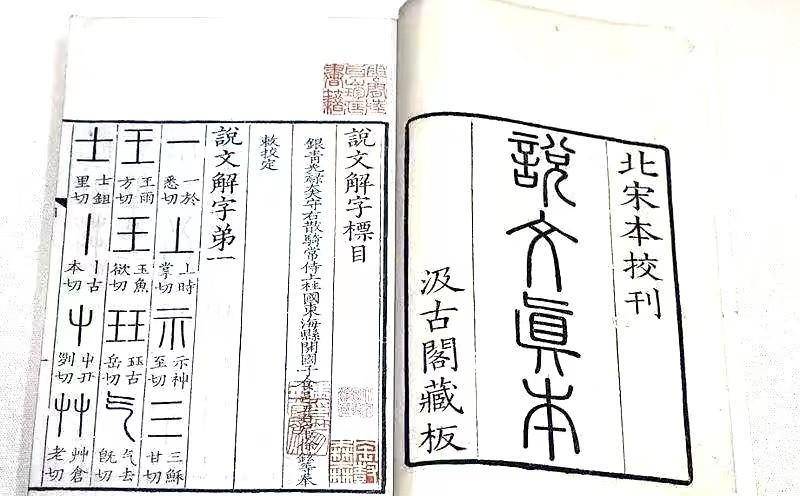 北宋本校刊
說文眞本
汲古閣藏板
說文解字標目
銀青光祿大夫守右散騎常侍上柱國東海縣開國子食邑五百戶臣徐鉉等奉
敕校定
說文解字弟一
一 一於悉切
丄 丄時掌切
示 示神至切
三 三穌甘切
王 王雨方切
玉 玉魚欲切
玨 玨古岳切
气 气去旣切
士 士鉏里切
丨 丨古本切
屮 屮丑列切
艸 艸倉老切